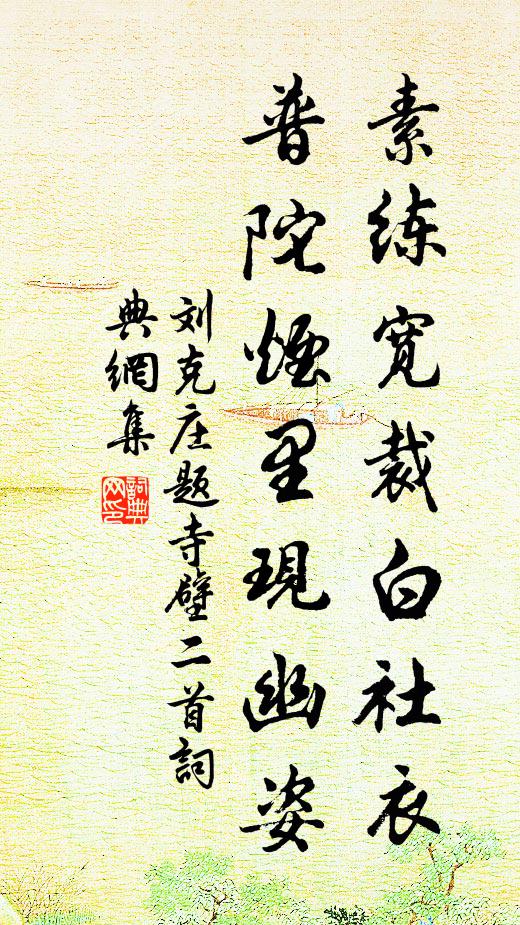 素练宽裁白社衣
普陀烟里现幽姿
刘克庄题寺壁二首詞
典網集
詞典網印